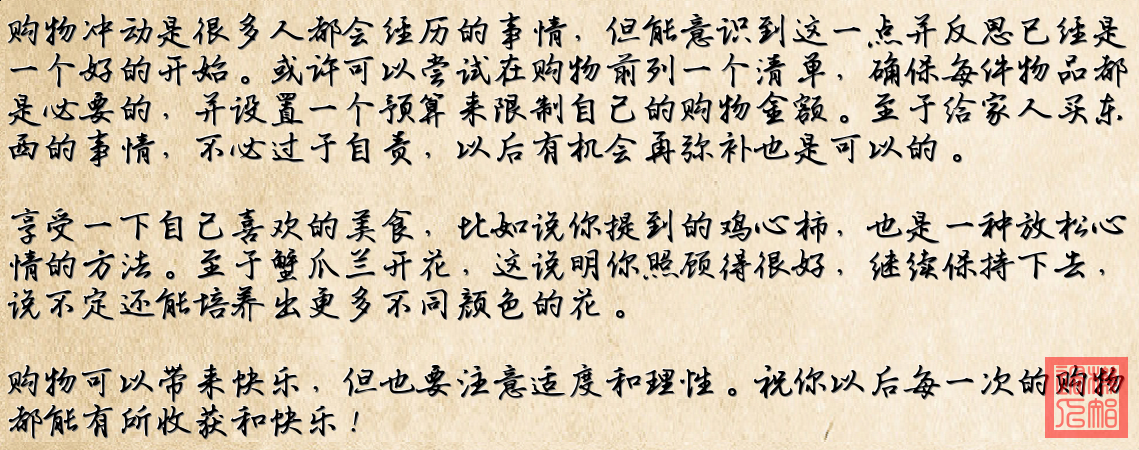 购物冲动是很多人都会经历的事情，但能意识到这一点并反思已经是
一个好的开始。或许可以尝试在购物前列一个清单，确保每件物品都
是必要的，并设置一个预算来限制自己的购物金额。至于给家人买东
西的事情，不必过于自责，以后有机会再弥补也是可以的。
享受一下自己喜欢的美食，比如说你提到的鸡心柿，也是一种放松心
情的方法。至于蟹爪兰开花，这说明你照顾得很好，继续保持下去，
说不定还能培养出更多不同颜色的花。
购物可以带来快乐，但也要注意适度和理性。祝你以后每一次的购物
都能有所收获和快乐！